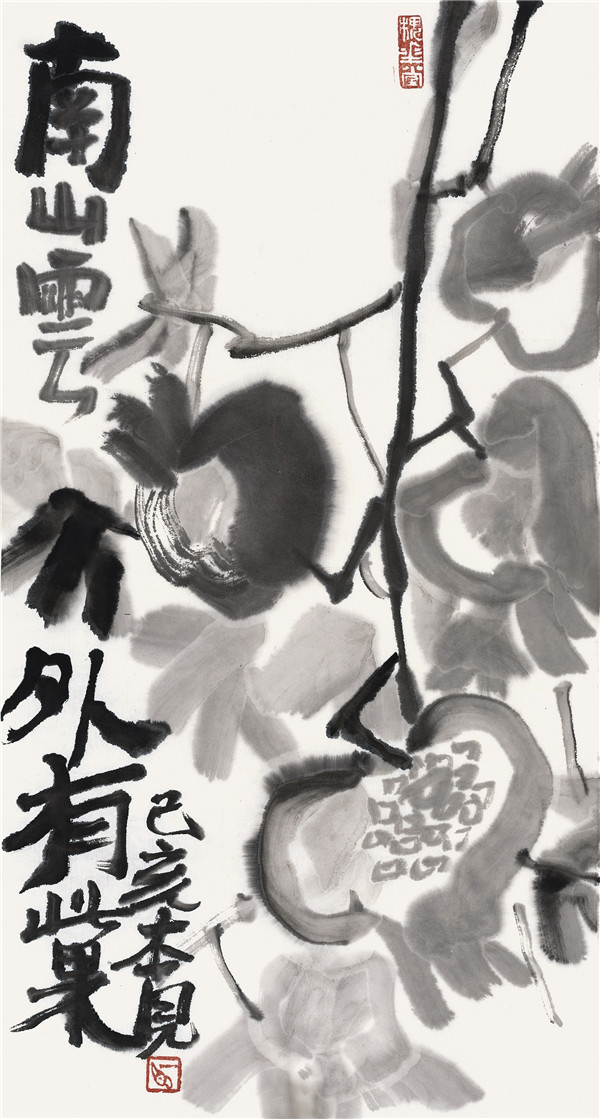 南山雲外有此果
己亥本見